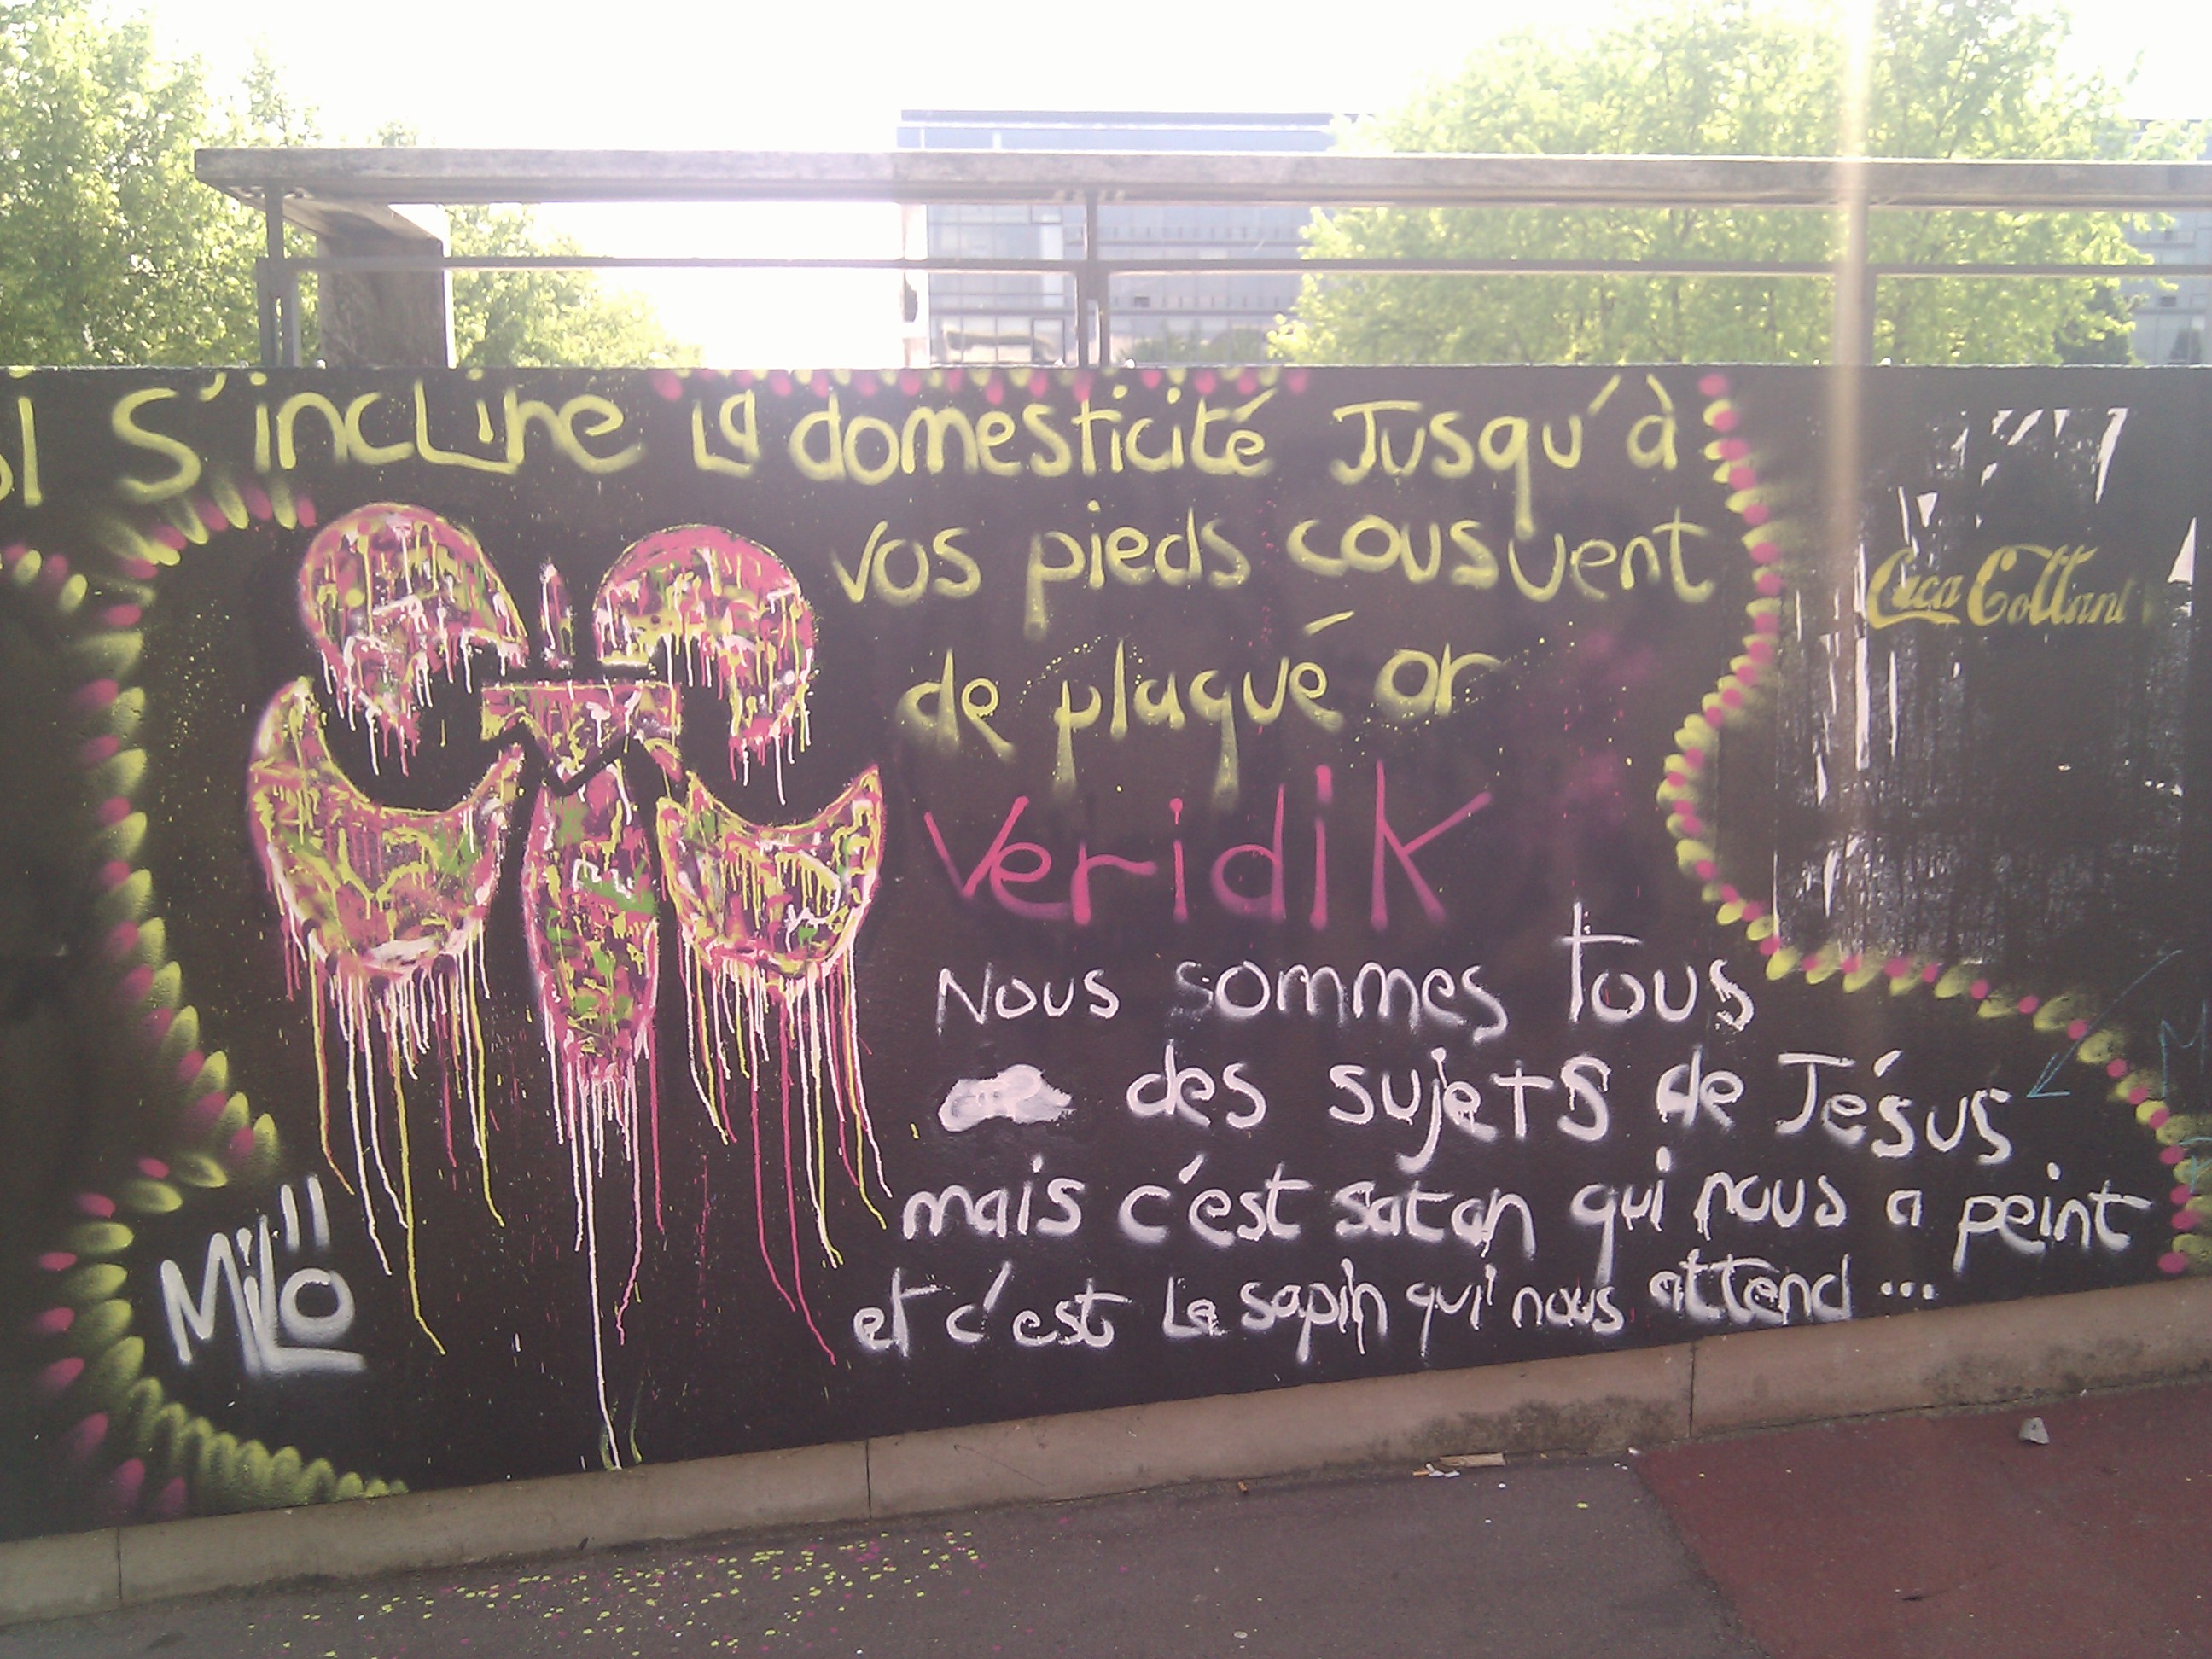 s'incline la domesticité Jusqu'à
vos pieds cousuent
de plaqué or
Veridik
Nous sommes tous
des sujets de Jésus
mais c'est satan qui nous a peint
et c'est le sapin qui nous attend...
Milo
Caca Collant